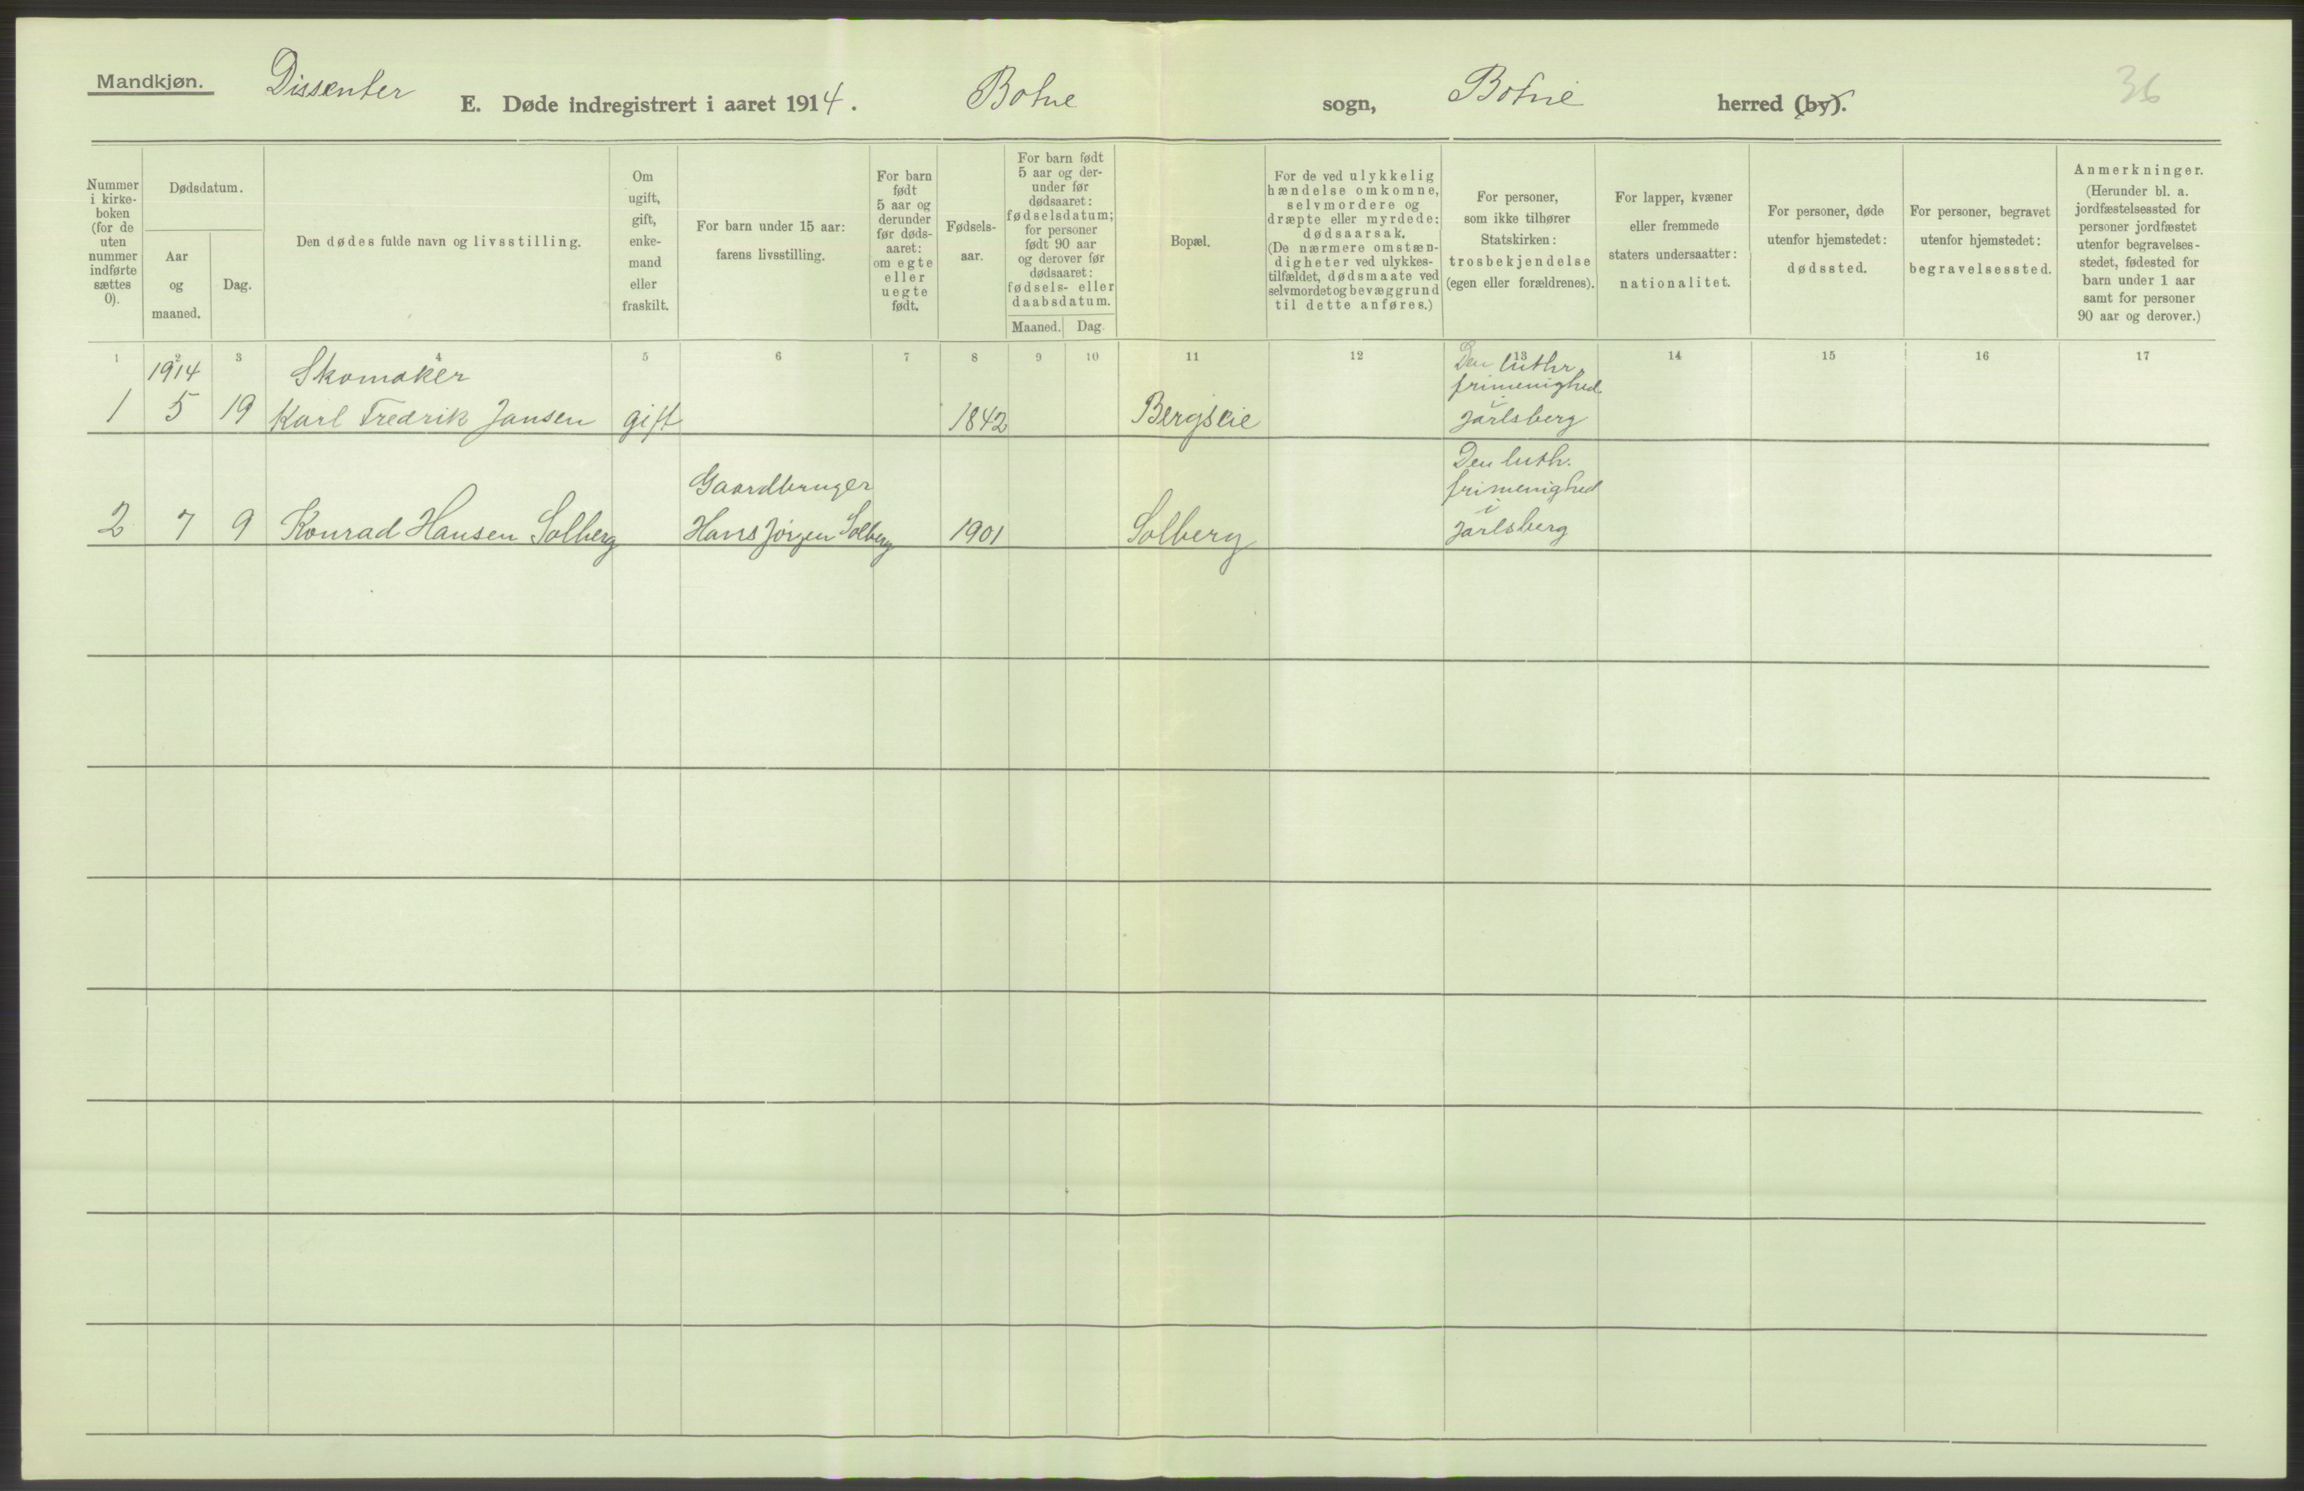 Mandkjøn.
Dissenter
E. Døde indregistrert i aaret 1914. Botne sogn, Botne herred (by).
36
Nummer
i kirke-
boken
(for de
uten
nummer
indførte
sættes
0).
Dødsdatum.
Aar
og
maaned.
Dag.
Den dødes fulde navn og livsstilling.
Om
ugift,
gift,
enke-
mand
eller
fraskilt.
For barn under 15 aar:
farens livsstilling.
For barn
født
5 aar og
derunder
før døds-
aaret:
om egte
eller
uegte
født.
Fødsels-
aar.
For barn født
5 aar og der-
under før
dødsaaret:
fødselsdatum;
for personer
født 90 aar
og derover før
dødsaaret:
fødsels- eller
daabsdatum.
Maaned. Dag.
Bopæl.
For de ved ulykkelig
hændelse omkomne,
selvmordere og
dræpte eller myrdede:
dødsaarsak.
(De nærmere omstæn-
digheter ved ulykkes-
tilfældet, dødsmaate ved
selvmordet og bevæggrund
til dette anføres.)
For personer,
som ikke tilhører
Statskirken:
trosbekjendelse
(egen eller forældrenes).
For lapper, kvæner
eller fremmede
staters undersaatter:
nationalitet.
For personer, døde
utenfor hjemstedet:
dødssted.
For personer, begravet
utenfor hjemstedet:
begravelsessted.
Anmerkninger.
(Herunder bl. a.
jordfæstelsessted for
personer jordfæstet
utenfor begravelses-
stedet, fødested for
barn under 1 aar
samt for personer
90 aar og derover.)
1 2 3 4 5 6 7 8 9 10 11 12 13 14 15 16 17
1914
Skomaker
Den luthr.
frimenighed
i
1 5 19 Karl Fredrik Jansen gift 1842 Bergseie Jarlsberg
Den luth.
Gaardbruger
frimenighed
i
2 7 9 Konrad Hansen Solberg Hans Jørgen Solberg 1901 Solberg Jarlsberg